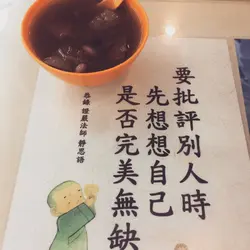 要批評別人時
先想想自己
是否完美無缺
恭錄 證嚴法師 靜思語